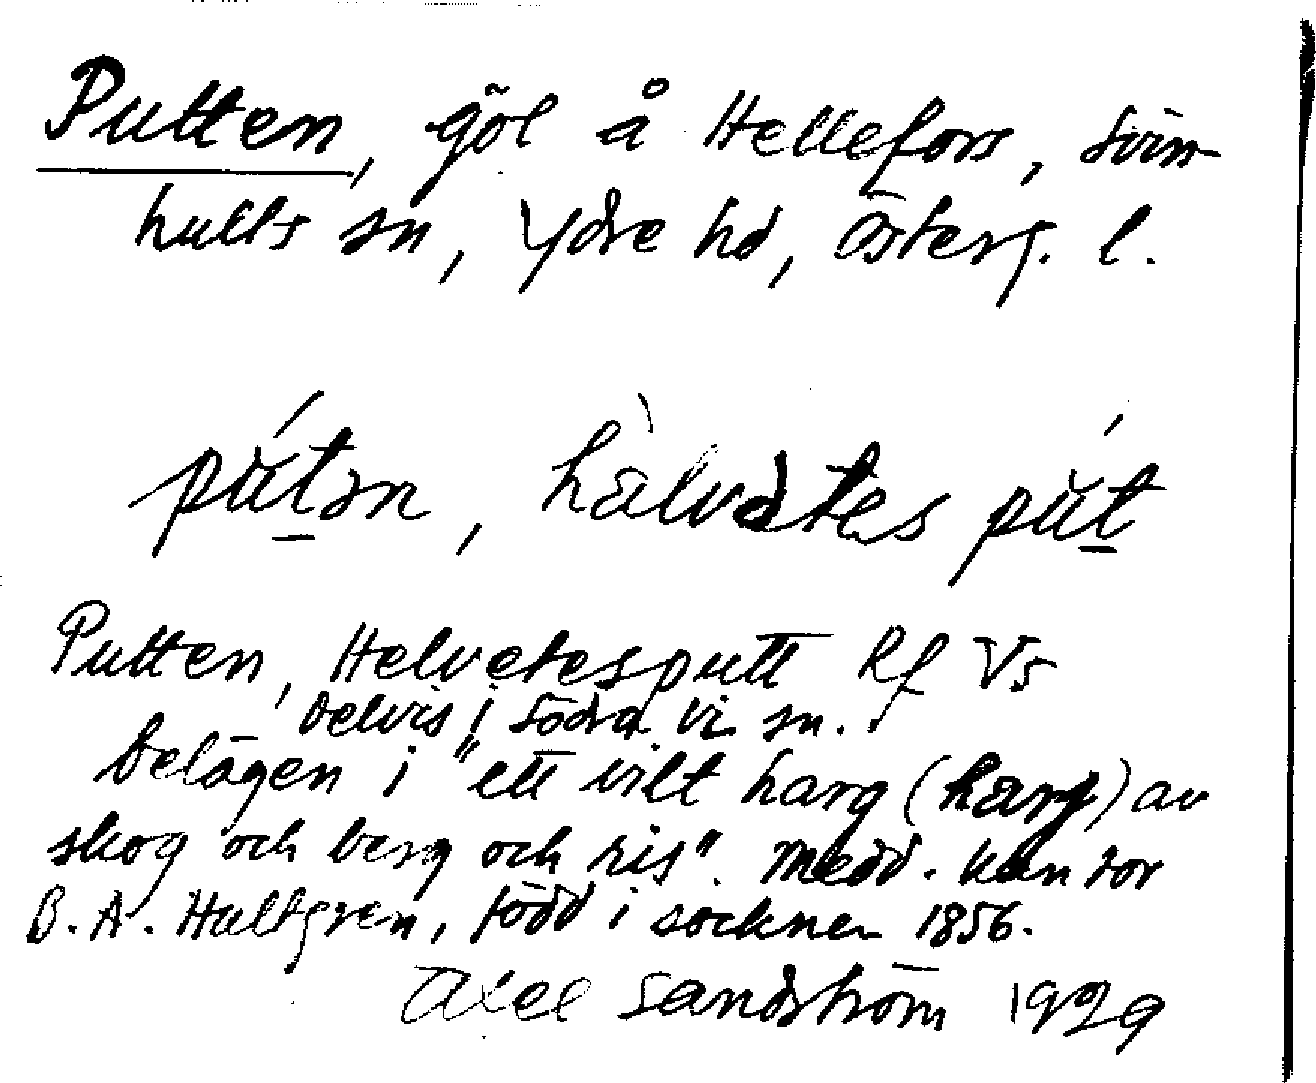 Putten, göl å Hellefors, Svin-
hults sn, Ydre hd, Österg. l.
pút̠ən, hàlvətes pút̠
Putten, Helvetesputt Rf Vs
delvis i Södra Vi sn.
belägen i "ett vilt harg (harg) av
skog och berg och ris". Medd. kantor
B. A. Hultgren, född i socknen 1856.
Axel Sandström 1929